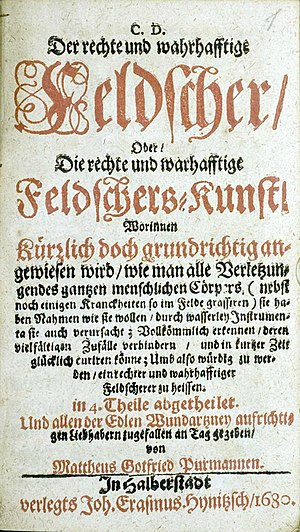 1
C. D.
Der rechte und wahrhafftige
Feldscher/
Oder/
Die rechte und warhafftige
Feldschers-Kunst/
Worinnen
Kürtzlich doch grundrichtig an-
gewiesen wird/ wie man alle Verletzun-
gen des gantzen menschlichen Cörpers, (nebst
noch einigen Kranckheiten so im Felde grassiren) sie ha-
ben Nahmen wie sie wollen/ durch wasserley Instrumen-
ta sie auch verursacht; Vollkömmlich erkennen/ deren
vielfältigen Zufälle verhindern / und in kurtzer Zeit
glücklich curiren könne; Umb also würdig zu wer-
den/ ein rechter und wahrhaffriger
Feldscherer zu heissen.
in 4. Theile abgetheilet.
Und allen der Edlen Wundartzney aufrichti-
gen Liebhabern zugefallen an Tag gegeben/
von
Mattheus Gotfried Purmannen.
In Halberstadt
verlegts Joh. Erasmus Hynitzsch/ 1680.